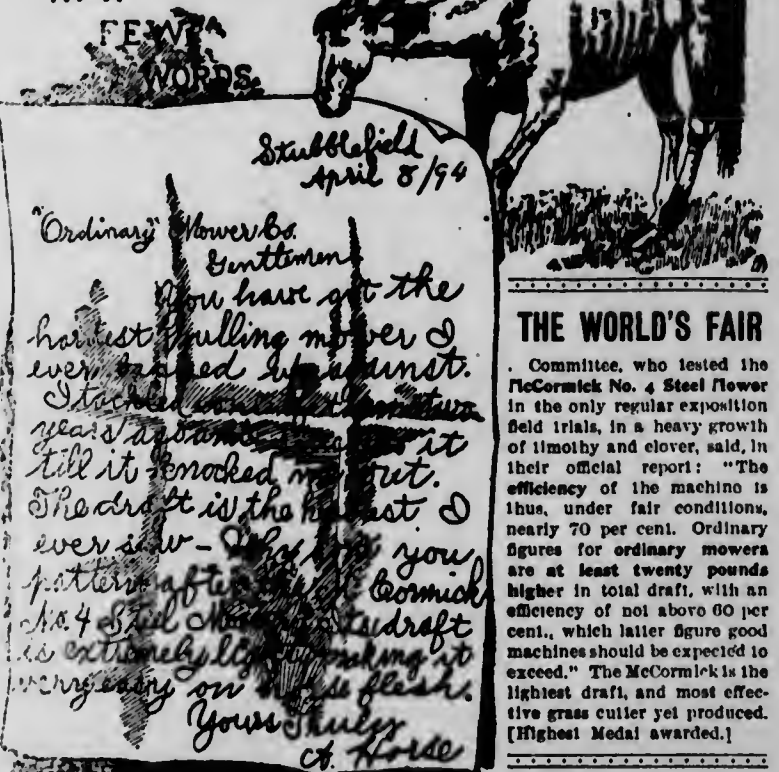 FEW
WORDS.
Stubblefield
April 8/94
"Ordinary" Mower Co.
Genttemen
You have got the
hardest pulling mower I
ever up against.
I tackled one of them two
years ago and it
till it knocked me out.
The draft is the hardest I
ever saw - Why don't you
pattern after the McCormick
No. 4 Steel Mower its draft
is extremely light making it
very easy on horse flesh.
Yours Truly
A. Horse
THE WORLD'S FAIR
. Committee, who tested the
McCormick No. 4 Steel Mower
in the only regular exposition
field trials, in a heavy growth
of timothy and clover, said, in
their official report: "The
efficiency of the machine is
thus, under fair conditions,
nearly 70 per cent. Ordinary
figures for ordinary mowers
are at least twenty pounds
higher in total draft, with an
efficiency of not above 60 per
cent., which latter figure good
machines should be expected to
exceed." The McCormick is the
lightest draft, and most effec-
tive grass cutter yet produced.
[Highest Medal awarded.]